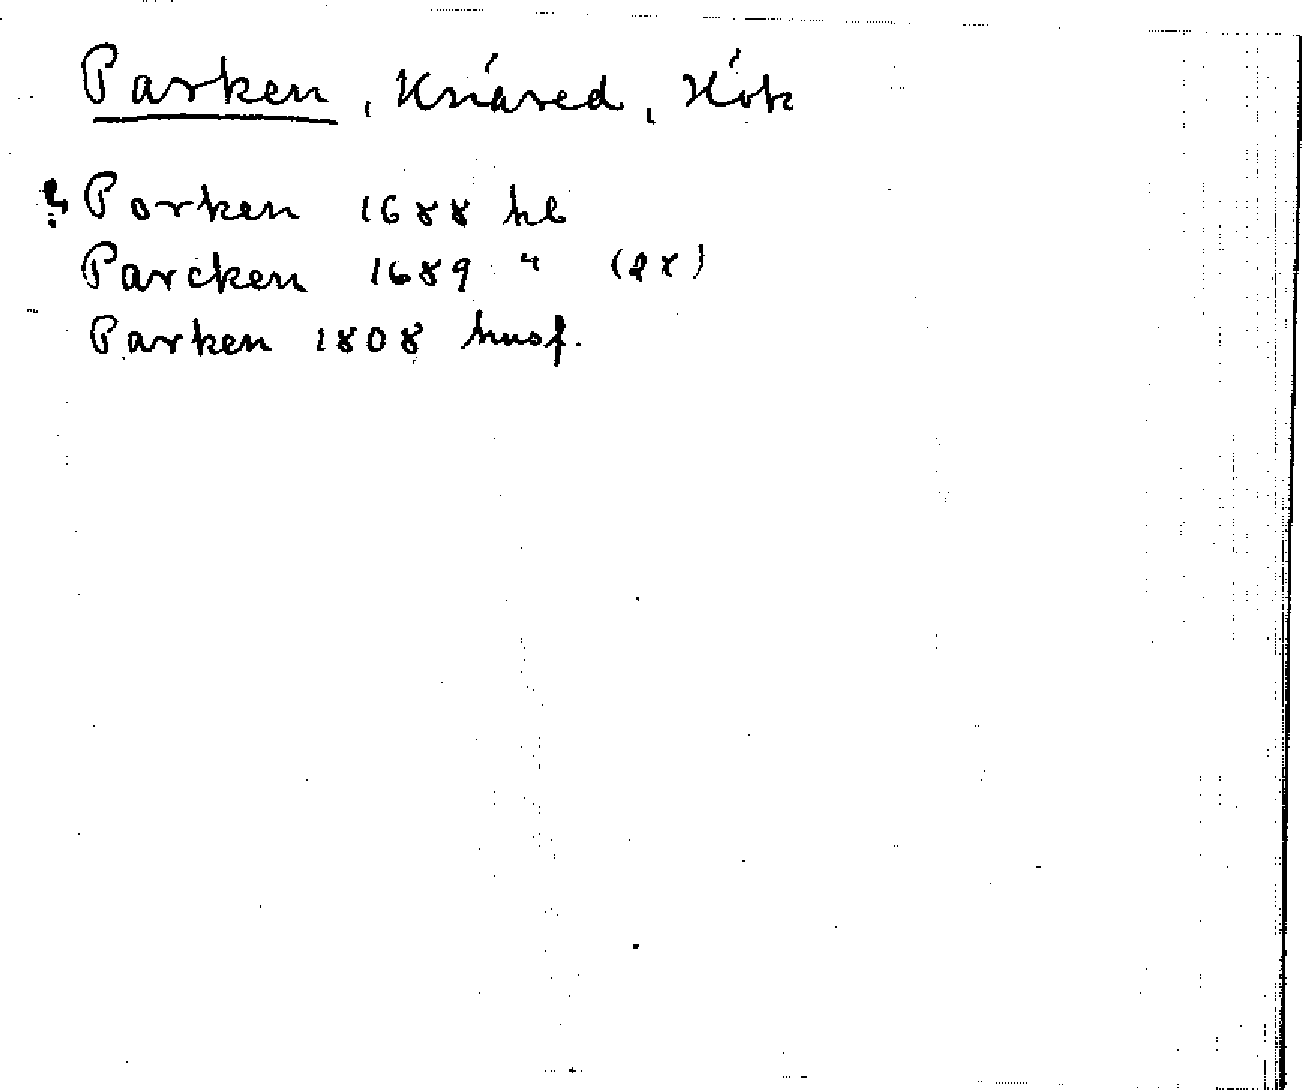 Parken, Knäred, Hök
Porken 1688 hl
Parcken 1689 " (2x)
Parken 1808 husf.